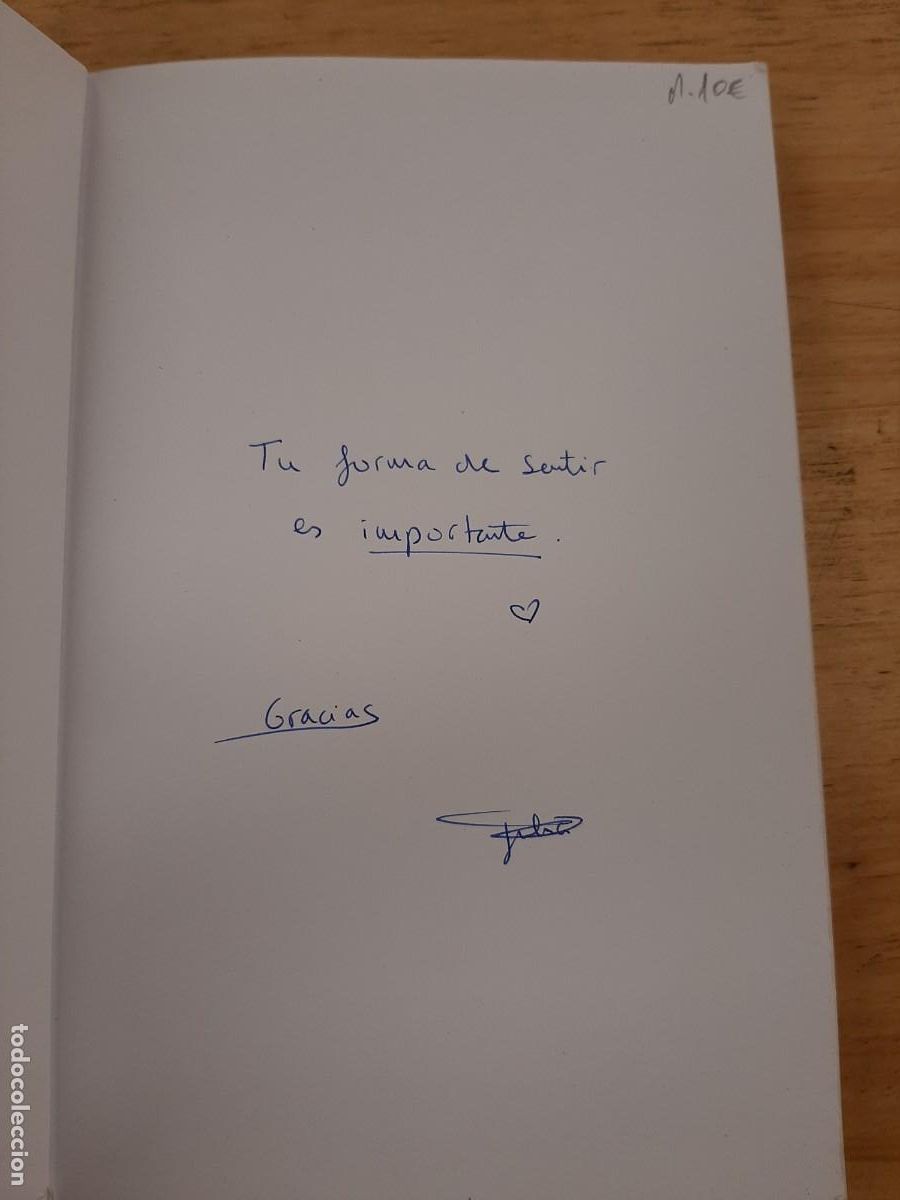 10€
Tu forma de sentir
es importante.
Gracias
todocoleccion